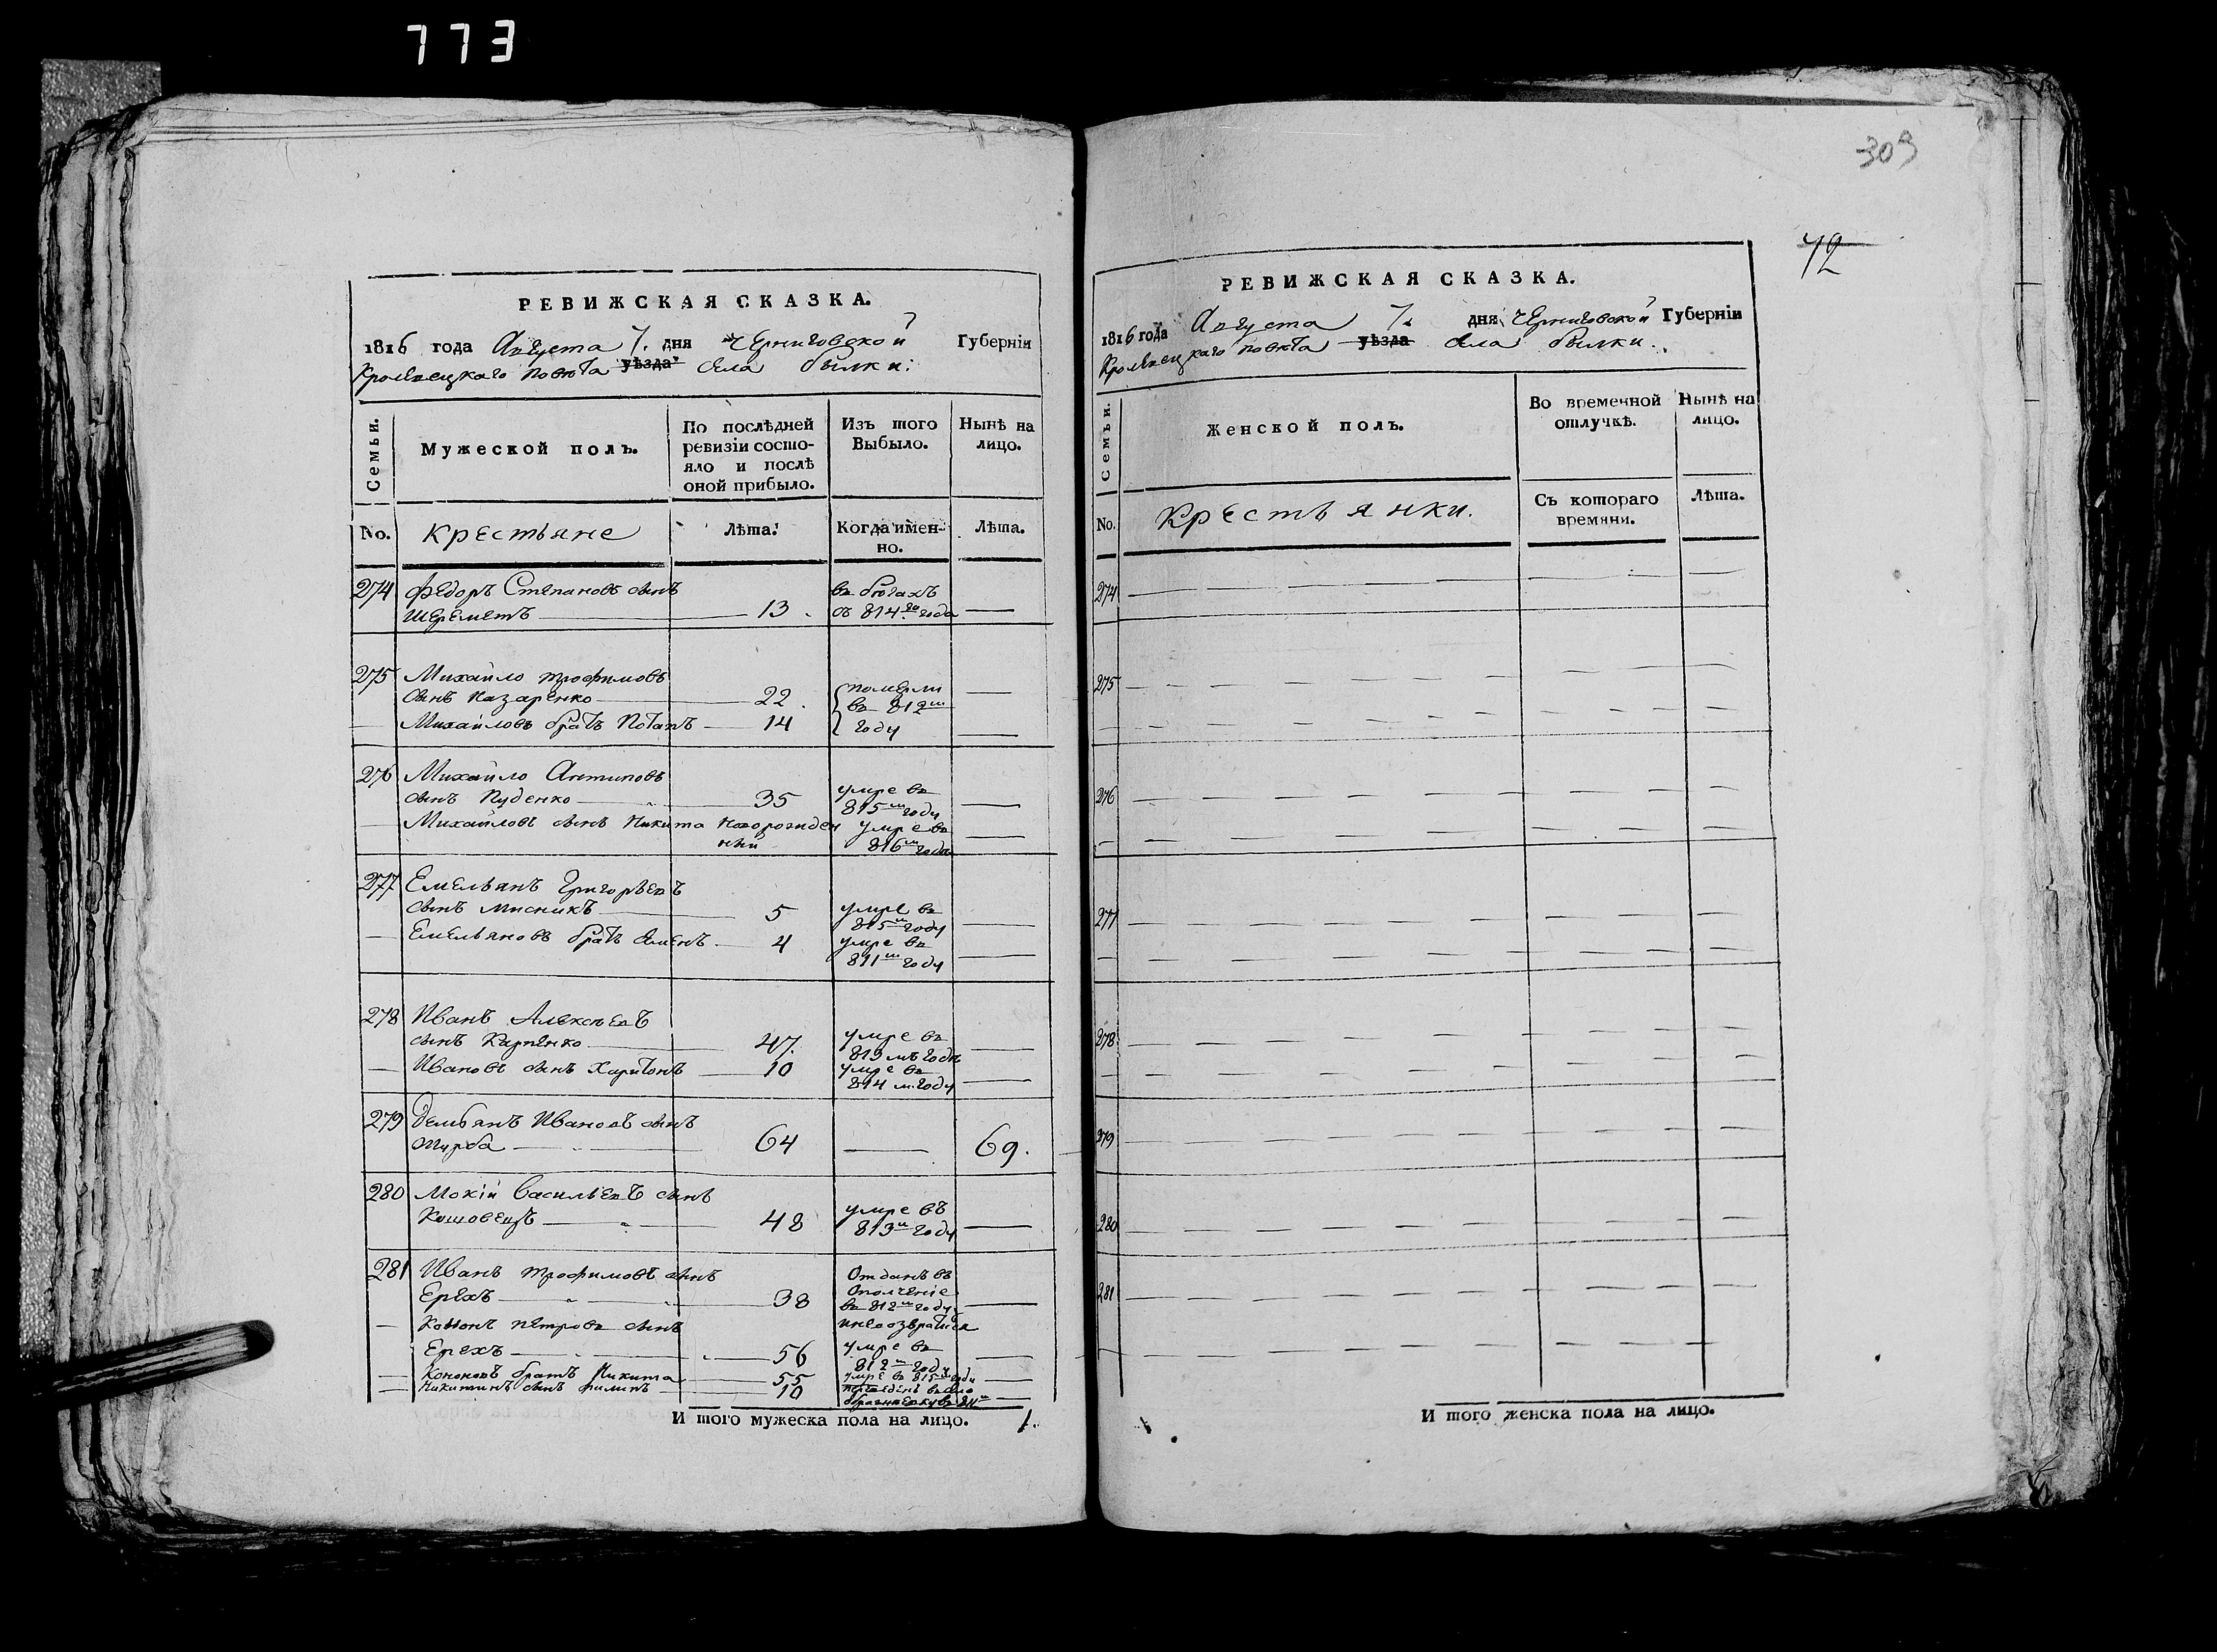 773
309
42
РЕВИЖСКАЯ СКАЗКА.
1816 года Августа 7. дня Черниговской Губернїи
Кролевецкаго повѣта уѣзда села билки:
Семьи.
Мужеской полъ.
По послѣдней
ревизїи состо-
яло и послѣ
оной прибыло.
Изъ того
Выбыло.
Нынѣ на
лицо.
No.
Крестьяне
Лѣта.
Когда имен-
но.
Лѣта.
274 Федоръ Степановъ сынъ в бѣгахъ
Шереметъ 13. съ 814го года
275 Михайло трофимовъ
сынъ Назаренко 22. померли
в 812м
Михайловъ братъ Потапъ 14 году
276 Михайло Антиповъ
сынъ Пуденко 35 умре в
815м году
Михайловъ сынъ Никита новорожден умре в
ный 816м года
277 Емельянъ Григорьевъ
сынъ Мисникъ 5 умре в
815м году
Емельяновъ братъ Семенъ 4 умре в
811м году
278 Иванъ Алексѣевъ
сынъ Карпенко 47. умре в
813мъ годѣ
Ивановъ сынъ Харитонъ 10 умре в
814м году
279 Демьянъ Ивановъ сынъ
64 69.
280 Мокїй Васильевъ сынъ
Кошовецъ 48 умре въ
813м году
281 Иванъ трофимовъ сынъ Отданъ въ
Ерехъ 38 Ополченїе
в 812м году
Кононъ петровъ сынъ
Ерехъ 56 умре в
812м году
Кононовъ братъ Никита 55 умре в 815м году
Никитинъ сынъ филипъ 10
И того мужеска пола на лицо. 1.
РЕВИЖСКАЯ СКАЗКА.
1816 года Августа 7. дня Черниговской Губернїи
Кролевецкаго повѣта уѣзда села билки.
Семьи.
Женской полъ.
Во временной
отлучкѣ.
Нынѣ на
лицо.
No.
Крестьянки.
Съ котораго
времяни.
Лѣта.
274
275
276
277
278
279
280
281
И того женска пола на лицо.